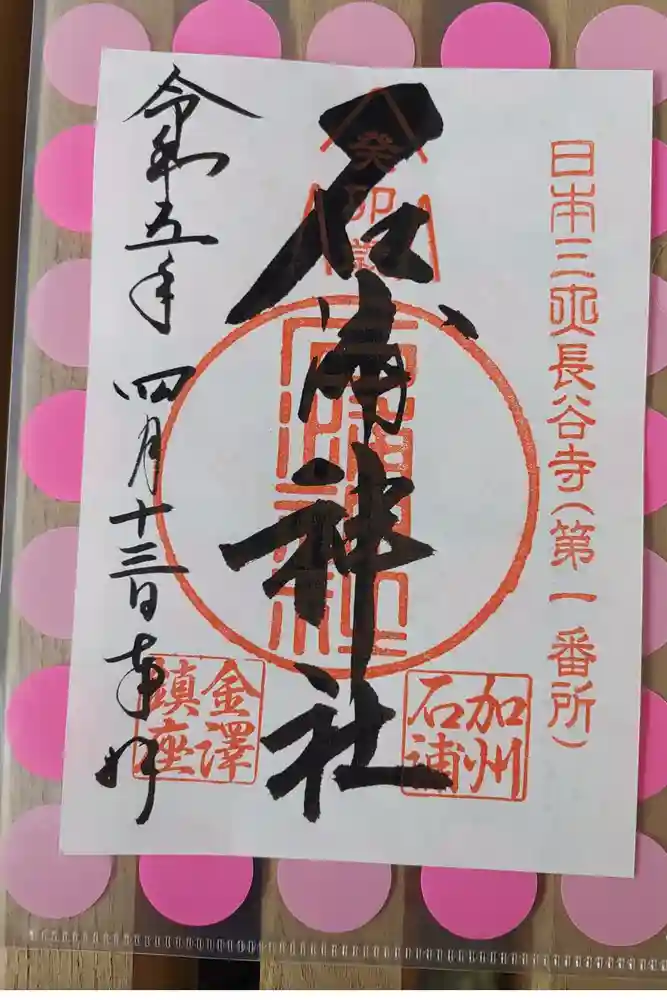 日本三所長谷寺(第一番所)
癸卯歳
石浦神社
石浦神社
加州
石浦
金澤
鎮座
令和五年
四月十三日奉拝